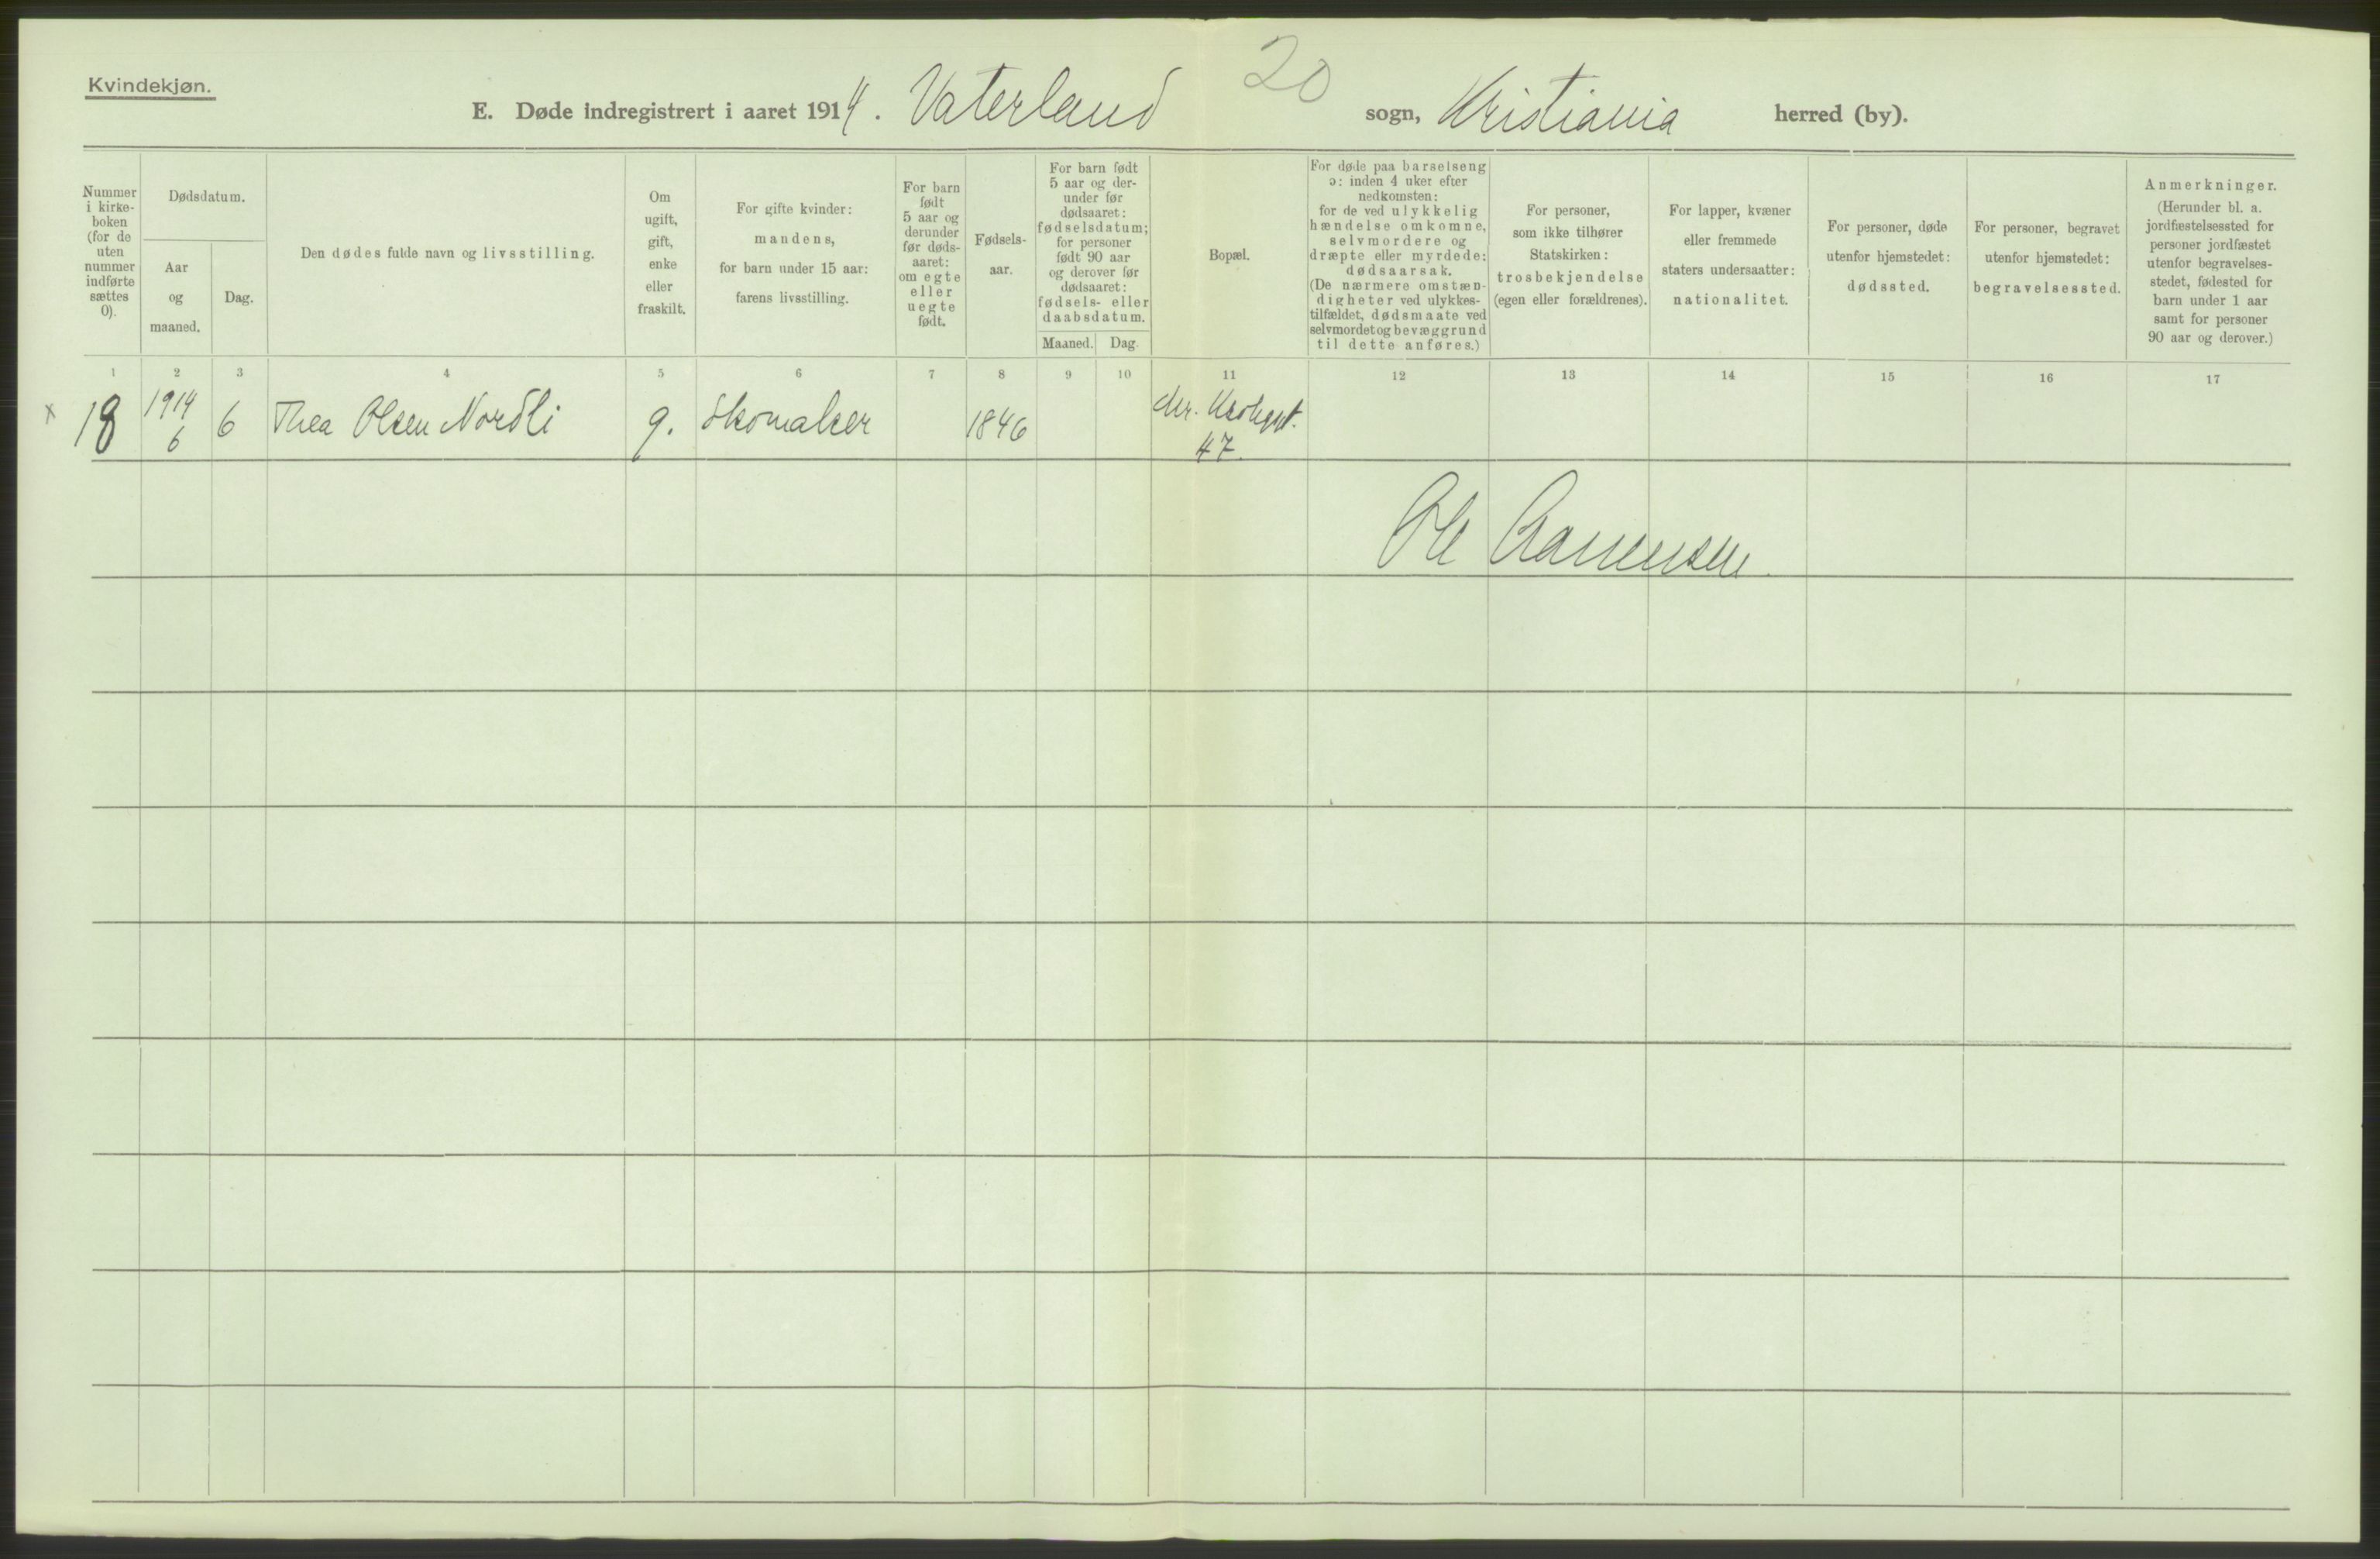 20
Kvindekjøn.
E. Døde indregistrert i aaret 1914. Vaterland sogn, Kristiania herred (by).
Nummer
i kirke-
boken
(for de
uten
nummer
indførte
sættes
0).
Dødsdatum.
Aar
og
maaned.
Dag.
Den dødes fulde navn og livsstilling.
Om
ugift,
gift,
enke
eller
fraskilt.
For gifte kvinder:
mandens,
for barn under 15 aar:
farens livsstilling.
For barn
født
5 aar og
derunder
før døds-
aaret:
om egte
eller
uegte
født.
Fødsels-
aar.
For barn født
5 aar og der-
under før
dødsaaret:
fødselsdatum;
for personer
født 90 aar
og derover før
dødsaaret:
fødsels- eller
daabsdatum.
Maaned.
Dag.
Bopæl.
For døde paa barselseng
ɔ: inden 4 uker efter
nedkomsten:
for de ved ulykkelig
hændelse omkomne,
selvmordere og
dræpte eller myrdede:
dødsaarsak.
(De nærmere omstæn-
digheter ved ulykkes-
tilfældet, dødsmaate ved
selvmordet og bevæggrund
til dette anføres.)
For personer,
som ikke tilhører
Statskirken:
trosbekjendelse
(egen eller forældrenes).
For lapper, kvæner
eller fremmede
staters undersaatter:
nationalitet.
For personer, døde
utenfor hjemstedet:
dødssted.
For personer, begravet
utenfor hjemstedet:
begravelsessted.
Anmerkninger.
(Herunder bl. a.
jordfæstelsessted for
personer jordfæstet
utenfor begravelses-
stedet, fødested for
barn under 1 aar
samt for personer
90 aar og derover.)
1 2 3 4 5 6 7 8 9 10 11 12 13 14 15 16 17
x 18 1914 6 6 Thea Olsen Nordli g. Skomaker 1846 Chr. Krohgst.
47.
Ole